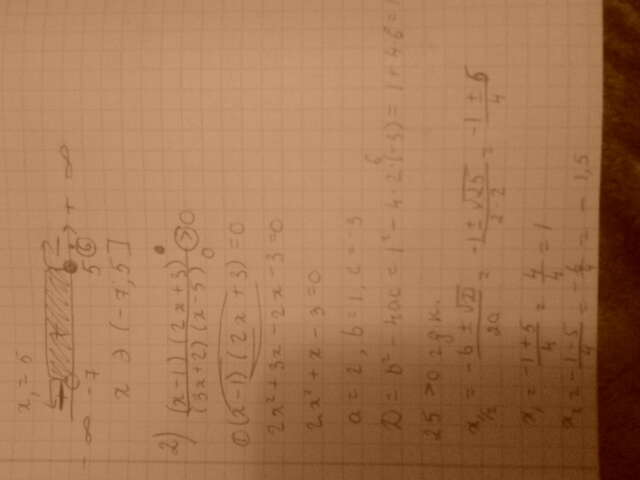 x₁ = 5
- ∞ -7 5 + ∞
x ∋ (-7; 5]
2) (x-1)(2x+3) / (3x+2)(x-5) > 0
① (x-1)(2x+3) = 0
2x² + 3x - 2x - 3 = 0
2x² + x - 3 = 0
a = 2, b = 1, c = -3
D = b² - 4ac = 1² - 4·2·(-3) = 1 +
25 > 0 2 g.k.
x₁/₂ = -b ± √D / 2a = -1 ± √25 / 2·2 = -1 ± 5 / 4
x₁ = -1+5 / 4 = 4/4 = 1
x₂ = -1-5 / 4 = -6/4 = -1,5